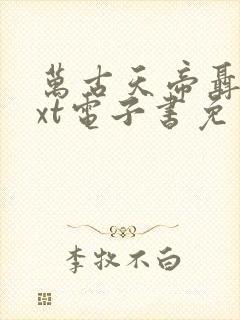 萬古天帝聶
xt電子書免
李牧不白